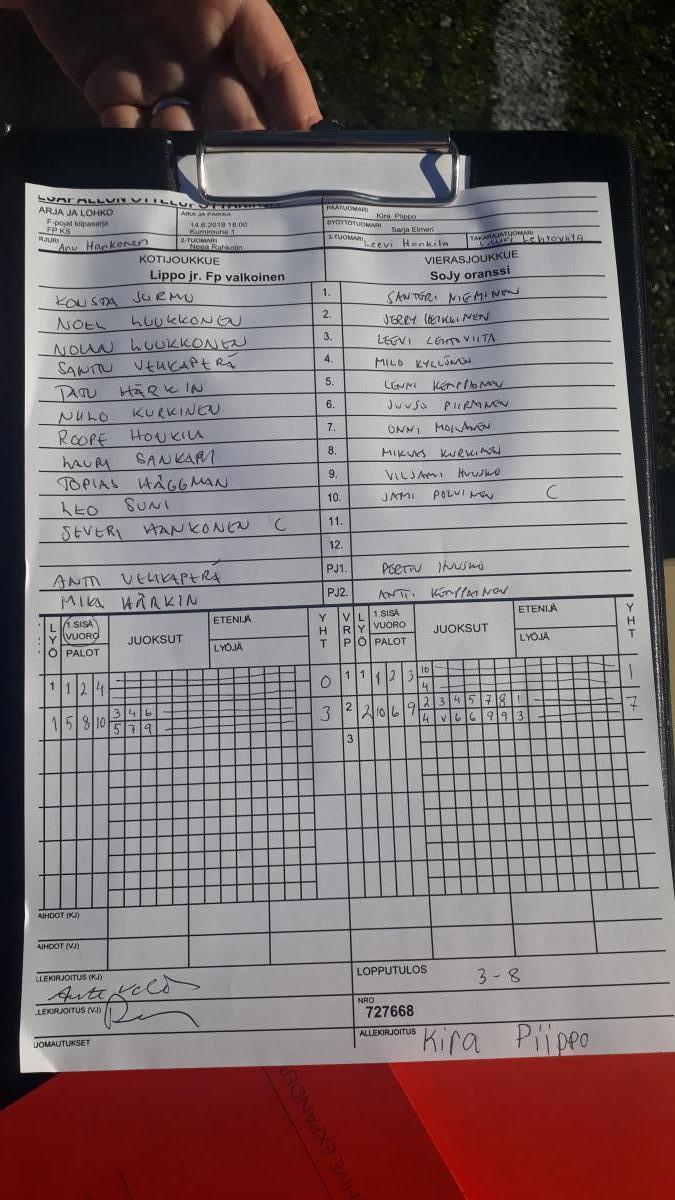 ARJA JA LOHKO
F-pojat kilpasarja
FP KS
AIKA JA PAIKKA
14.6.2019 18:00
Kumirouhe 1
PÄÄTUOMARI
Kira Piippo
SYÖTTÖTUOMARI
Sarja Elmeri
RJURI Anu Hankonen
2-TUOMARI
Neea Rahkolin
3-TUOMARI Leevi Honkila
TAKARAJATUOMARI
Lehtoviita
KOTIJOUKKUE
Lippo jr. Fp valkoinen
VIERASJOUKKUE
SoJy oranssi
KONSTA JURMU 1. SANTERI NIEMINEN
NOEL LUUKKONEN 2. JERRY HEIKKINEN
NOLAN LUUKKONEN 3. LEEVI LEHTOVIITA
SANTTU VEHKAPERÄ 4. MILO KYLLÖNEN
TATU HÄRKIN 5. LENNI KEMPPAINEN
NIILO KURKINEN 6. JUUSO PIIRAINEN
ROOPE HONKILA 7. ONNI MOILANEN
LAURI SANKARI 8. MIKLAS KURKINEN
TOPIAS HÄGGMAN 9. VILJAMI HUUSKO
LEO SUNI 10. JAMI POLVINEN C
SEVERI HANKONEN C 11.
12.
ANTTI VEHKAPERÄ PJ1. PERTTU HUUSKO
MIKA HÄRKIN PJ2. ANTTI KEMPPAINEN
LYÖ 1.SISÄ VUORO PALOT JUOKSUT ETENIJÄ LYÖJÄ YHT VRP LYÖ 1.SISÄ VUORO PALOT JUOKSUT ETENIJÄ LYÖJÄ YHT
1 1 2 4 0 1 1 1 2 3 10 1
4
1 5 8 10 3 4 6 3 2 2 10 6 9 2 3 4 5 7 8 1 7
5 7 9 4 V 6 6 9 9 3
3
AIHDOT (KJ)
AIHDOT (VJ)
LLEKIRJOITUS (KJ)
LOPPUTULOS 3-8
LLEKIRJOITUS (VJ)
NRO
727668
UOMAUTUKSET
ALLEKIRJOITUS Kira Piippo
HIVE EXPANDER